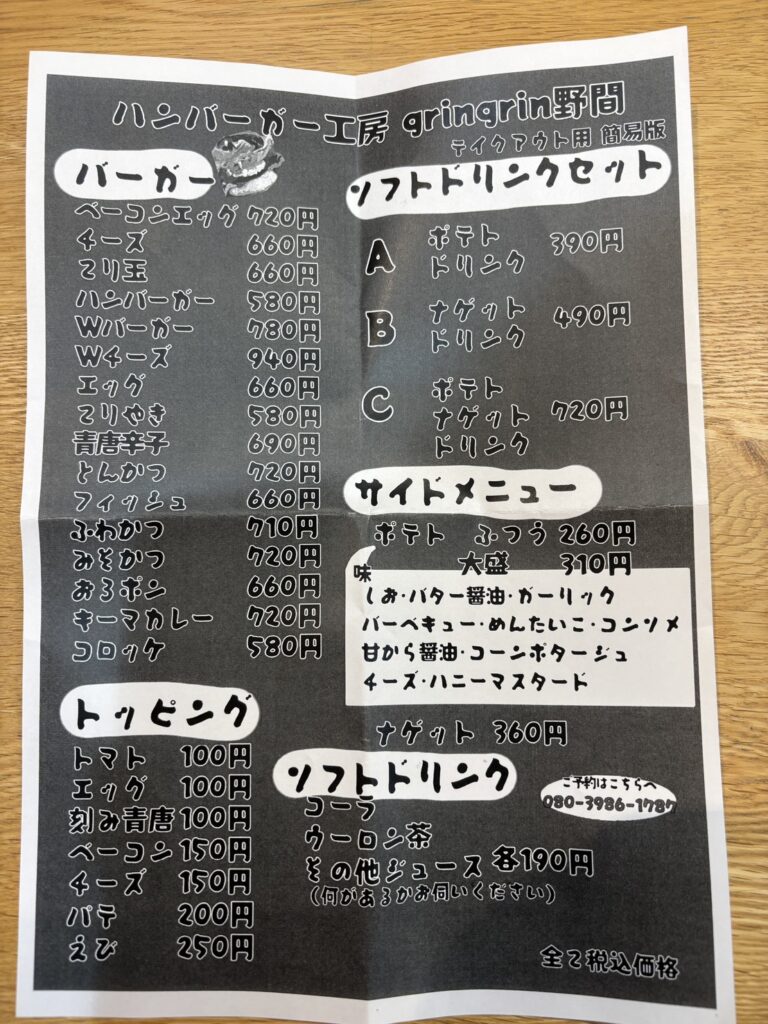 ハンバーガー工房 gringrin野間
テイクアウト用 簡易版
バーガー
ベーコンエッグ 720円
チーズ 660円
てり玉 660円
ハンバーガー 580円
Wバーガー 780円
Wチーズ 940円
エッグ 660円
てりやき 580円
青唐辛子 690円
とんかつ 720円
フィッシュ 660円
ふわかつ 710円
みそかつ 720円
おろポン 660円
キーマカレー 720円
コロッケ 580円
トッピング
トマト 100円
エッグ 100円
刻み青唐 100円
ベーコン 150円
チーズ 150円
パテ 200円
えび 250円
ソフトドリンクセット
A ポテト 390円
ドリンク
B ナゲット 490円
ドリンク
C ポテト
ナゲット 720円
ドリンク
サイドメニュー
ポテト ふつう 260円
大盛 310円
味
しお・バター醤油・ガーリック
バーベキュー・めんたいこ・コンソメ
甘から醤油・コーンポタージュ
チーズ・ハニーマスタード
ナゲット 360円
ソフトドリンク
コーラ
ウーロン茶
その他ジュース 各190円
(何があるかお伺いください)
ご予約はこちらへ
080-3986-1787
全て税込価格